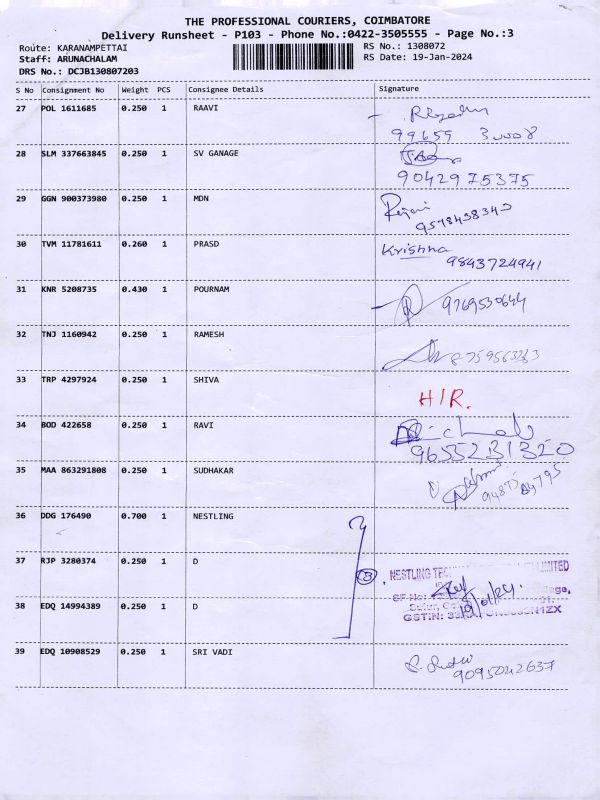 THE PROFESSIONAL COURIERS, COIMBATORE
Delivery Runsheet - P103 - Phone No.:0422-3505555 - Page No.:3
Route: KARANAMPETTAI
RS No.: 1308072
Staff: ARUNACHALAM
RS Date: 19-Jan-2024
DRS No.: DCJB130807203
S No Consignment No Weight PCS Consignee Details Signature
27 POL 1611685 0.250 1 RAAVI
28 SLM 337663845 0.250 1 SV GANAGE
90429 75375
29 GGN 900373980 0.250 1 MDN
9578438343
30 TVM 11781611 0.260 1 PRASD Krishna
9843724941
31 KNR 5208735 0.430 1 POURNAM 9769530644
32 TNJ 1160942 0.250 1 RAMESH
33 TRP 4297924 0.250 1 SHIVA H/R.
34 BOD 422658 0.250 1 RAVI
9655231320
35 MAA 863291808 0.250 1 SUDHAKAR
36 DDG 176490 0.700 1 NESTLING
37 RJP 3280374 0.250 1 D
3 NESTLING LIMITED
38 EDQ 14994389 0.250 1 D
GSTIN:
39 EDQ 10908529 0.250 1 SRI VADI
9095042637